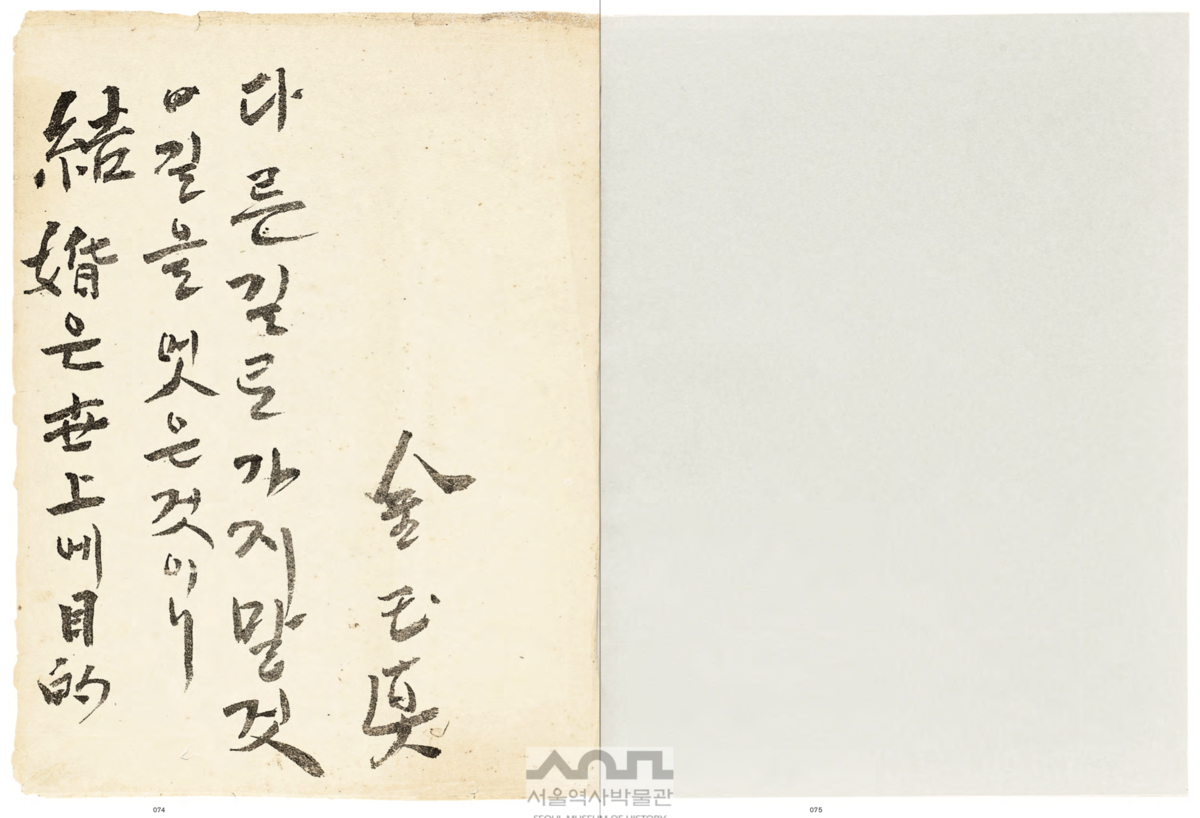 結婚은世上에目的
길을멋은것이니
다른길로가지말것
金玉眞
074
075
서울역사박물관
SEOUL MUSEUM OF HISTORY